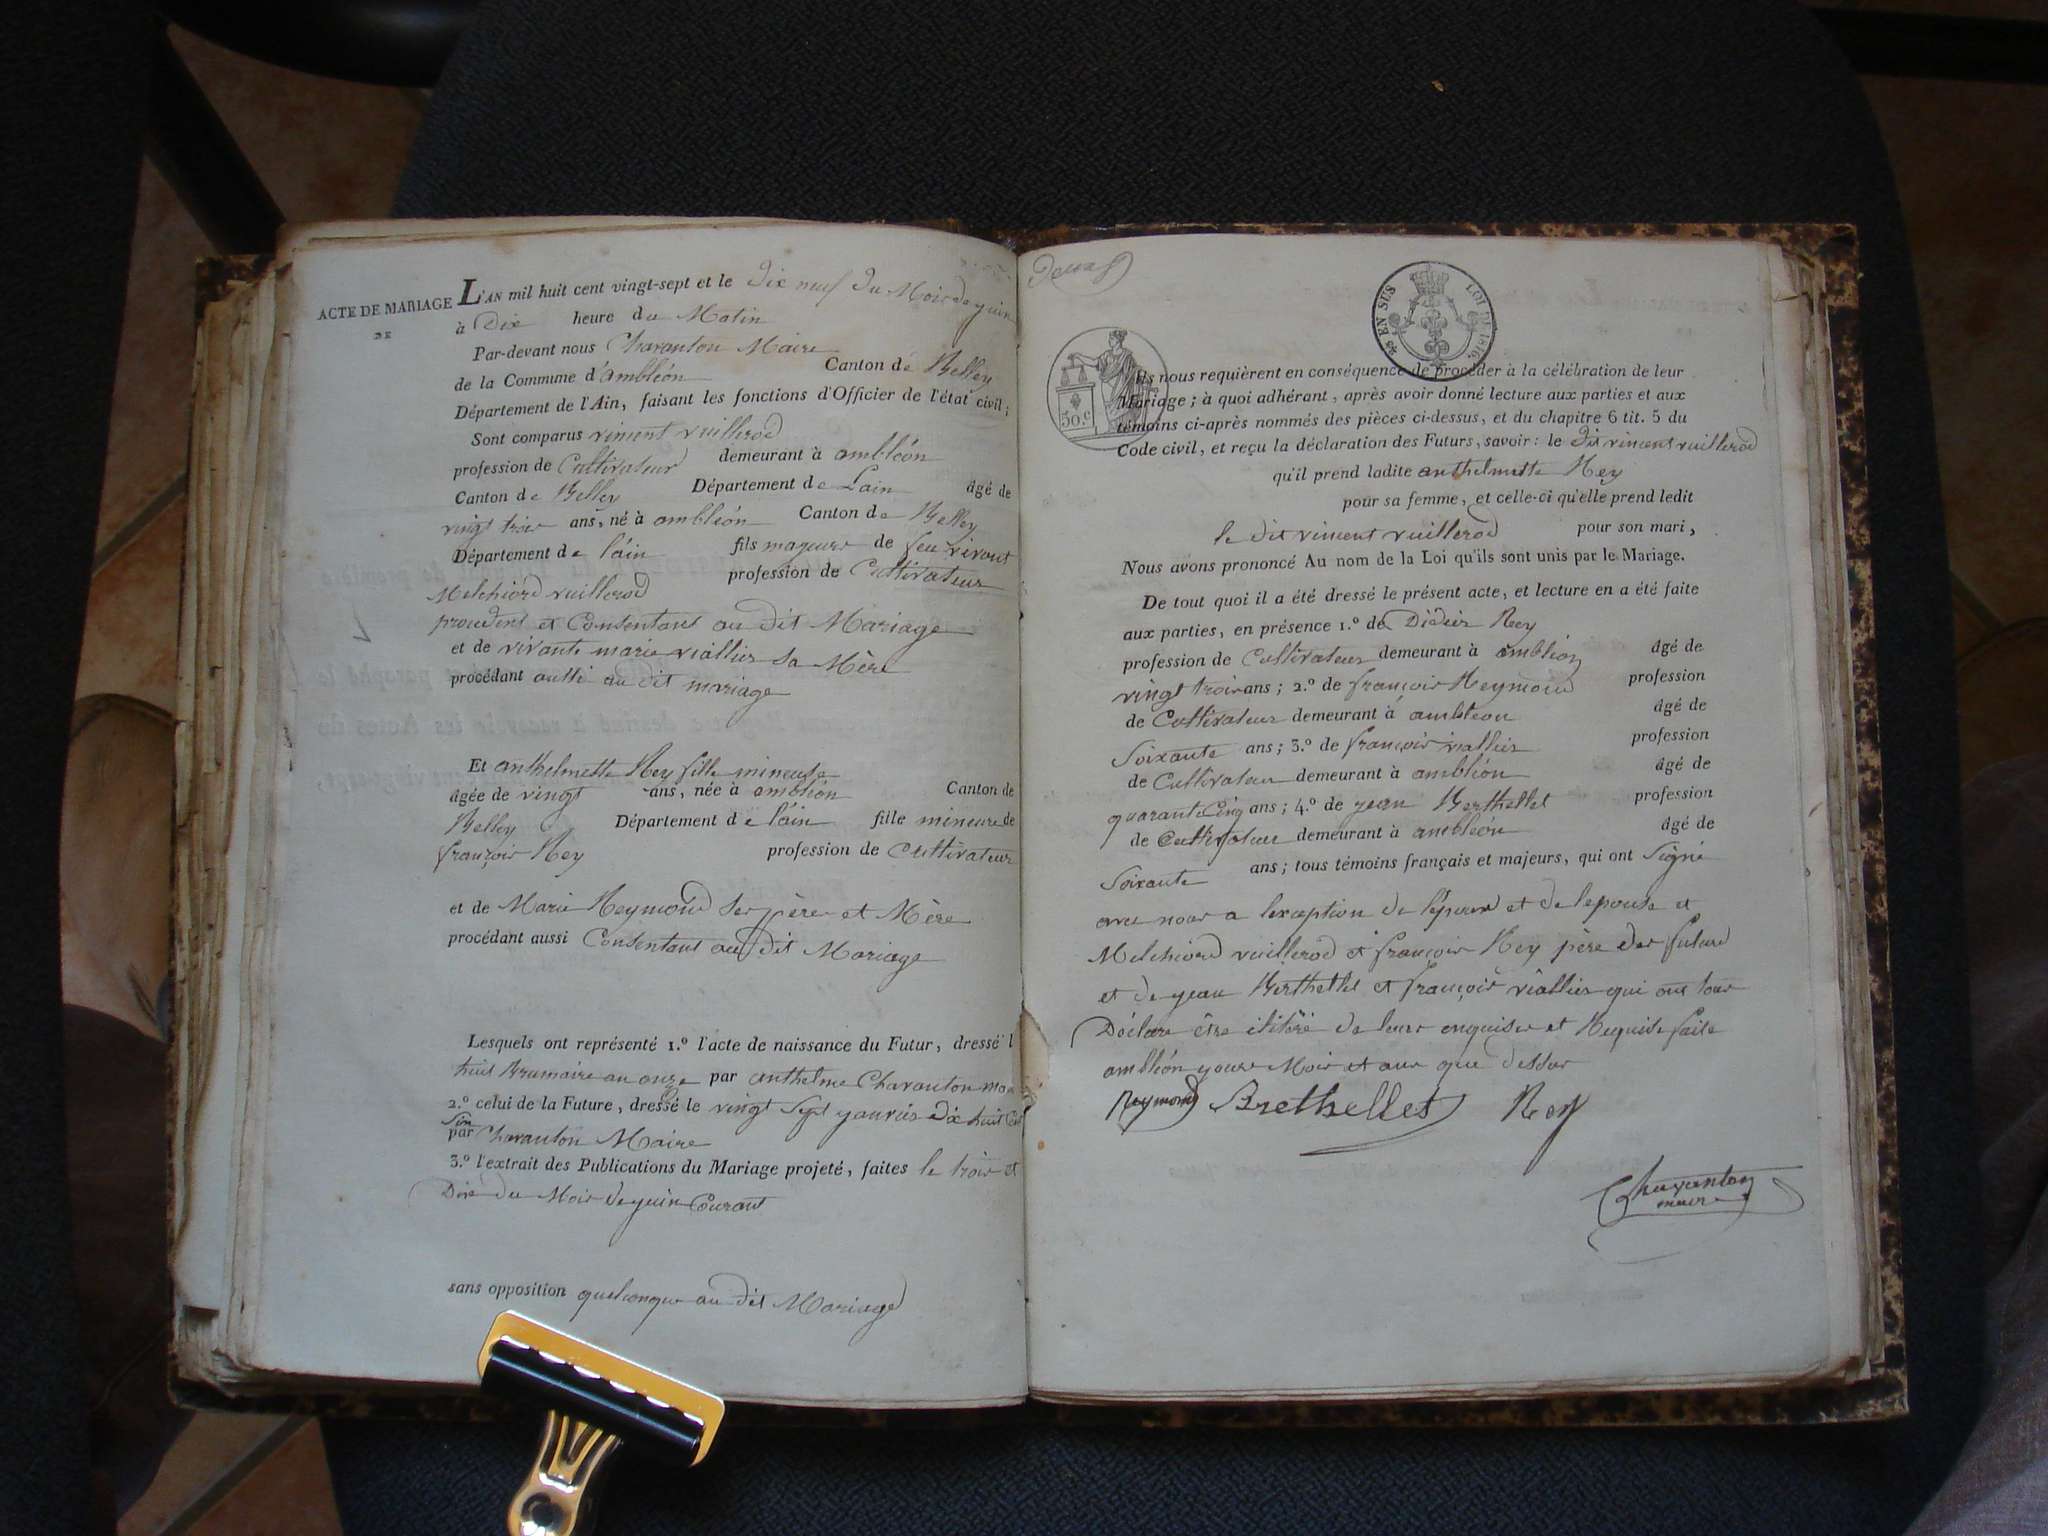 ACTE DE MARIAGE
DE
L'AN mil huit cent vingt-sept et le Dix neuf du Mois de juin
à Dix heure du Matin
Par-devant nous Chavanton Maire
de la Commune d'ambléon Canton de Belley
Département de l'Ain, faisant les fonctions d'Officier de l'état civil;
Sont comparus vincent vuillerod
profession de Cultivateur demeurant à ambléon
Canton de Belley Département de Lain âgé de
vingt trois ans, né à ambléon Canton de Belley
Département de láin fils mageur de feu vivant
Melchiord vuillerod profession de Cultivateur
procedent et Consentant au dit Mariage
et de vivante marie viallier sa Mère
procédant aussi au dit mariage
Et anthelmette Rey fille mineuse
âgée de vingt ans, née à ambléon Canton de
Belley Département de láin fille mineure de
françois Rey profession de Cultivateur
et de Marie Reymond ses père et Mère
procédant aussi Consentant au dit Mariage
Lesquels ont représenté 1.º l'acte de naissance du Futur, dressé l
huit Brumaire an onze par anthelme Chavanton
2.º celui de la Future, dressé le vingt Sept janvier dix huit Cent
Sin
par Chavanton Maire
3.º l'extrait des Publications du Mariage projeté, faites le trois et
Dix du Mois de juin Courant
sans opposition quelconque au dit Mariage
EN SUS LOI DE 1816.
30.c
Ils nous requièrent en conséquence de procéder à la célébration de leur
Mariage; à quoi adhérant, après avoir donné lecture aux parties et aux
témoins ci-après nommés des pièces ci-dessus, et du chapitre 6 tit. 5 du
Code civil, et reçu la déclaration des Futurs, savoir: le dit vincent vuillerod
qu'il prend ladite anthelmette Rey
pour sa femme, et celle-ci qu'elle prend ledit
le dit vincent vuillerod pour son mari,
Nous avons prononcé Au nom de la Loi qu'ils sont unis par le Mariage.
De tout quoi il a été dressé le présent acte, et lecture en a été faite
aux parties, en présence 1.º de Didier Rey
profession de Cultivateur demeurant à ambléon âgé de
vingt trois ans; 2.º de françois Reymond profession
de Cultivateur demeurant à ambléon âgé de
Soixante ans; 3.º de françois viallier profession
de Cultivateur demeurant à ambléon âgé de
quarante Cinq ans; 4.º de jean Berthellet profession
de Cultivateur demeurant à ambléon âgé de
Soixante ans; tous témoins français et majeurs, qui ont Signé
avec nous a lexception de lépoux et de lepouse et
Melchiord vuillerod et françois Rey père des futurd
et de jean Berthellet et françois viallier qui ont tous
Déclare être ilitéré de leurs enquise et Requise faite
ambléon jours Mois et aux que dessus
Reymond Brethellet Rey
Chavanton
maire